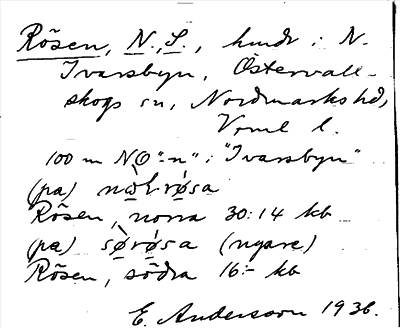 Rösen, N., S., hmdr i N.
Ivarsbyn, Östervall-
skogs sn, Nordmarks hd,
Vrml l.
100 m NO "-n" i "Ivarsbyn"
(pa) nɷLrøsa
Rösen, norra 30:14 kb
(pa) sørøsa (nyare)
Rösen, södra 16:- kb
E. Andersson 1936.